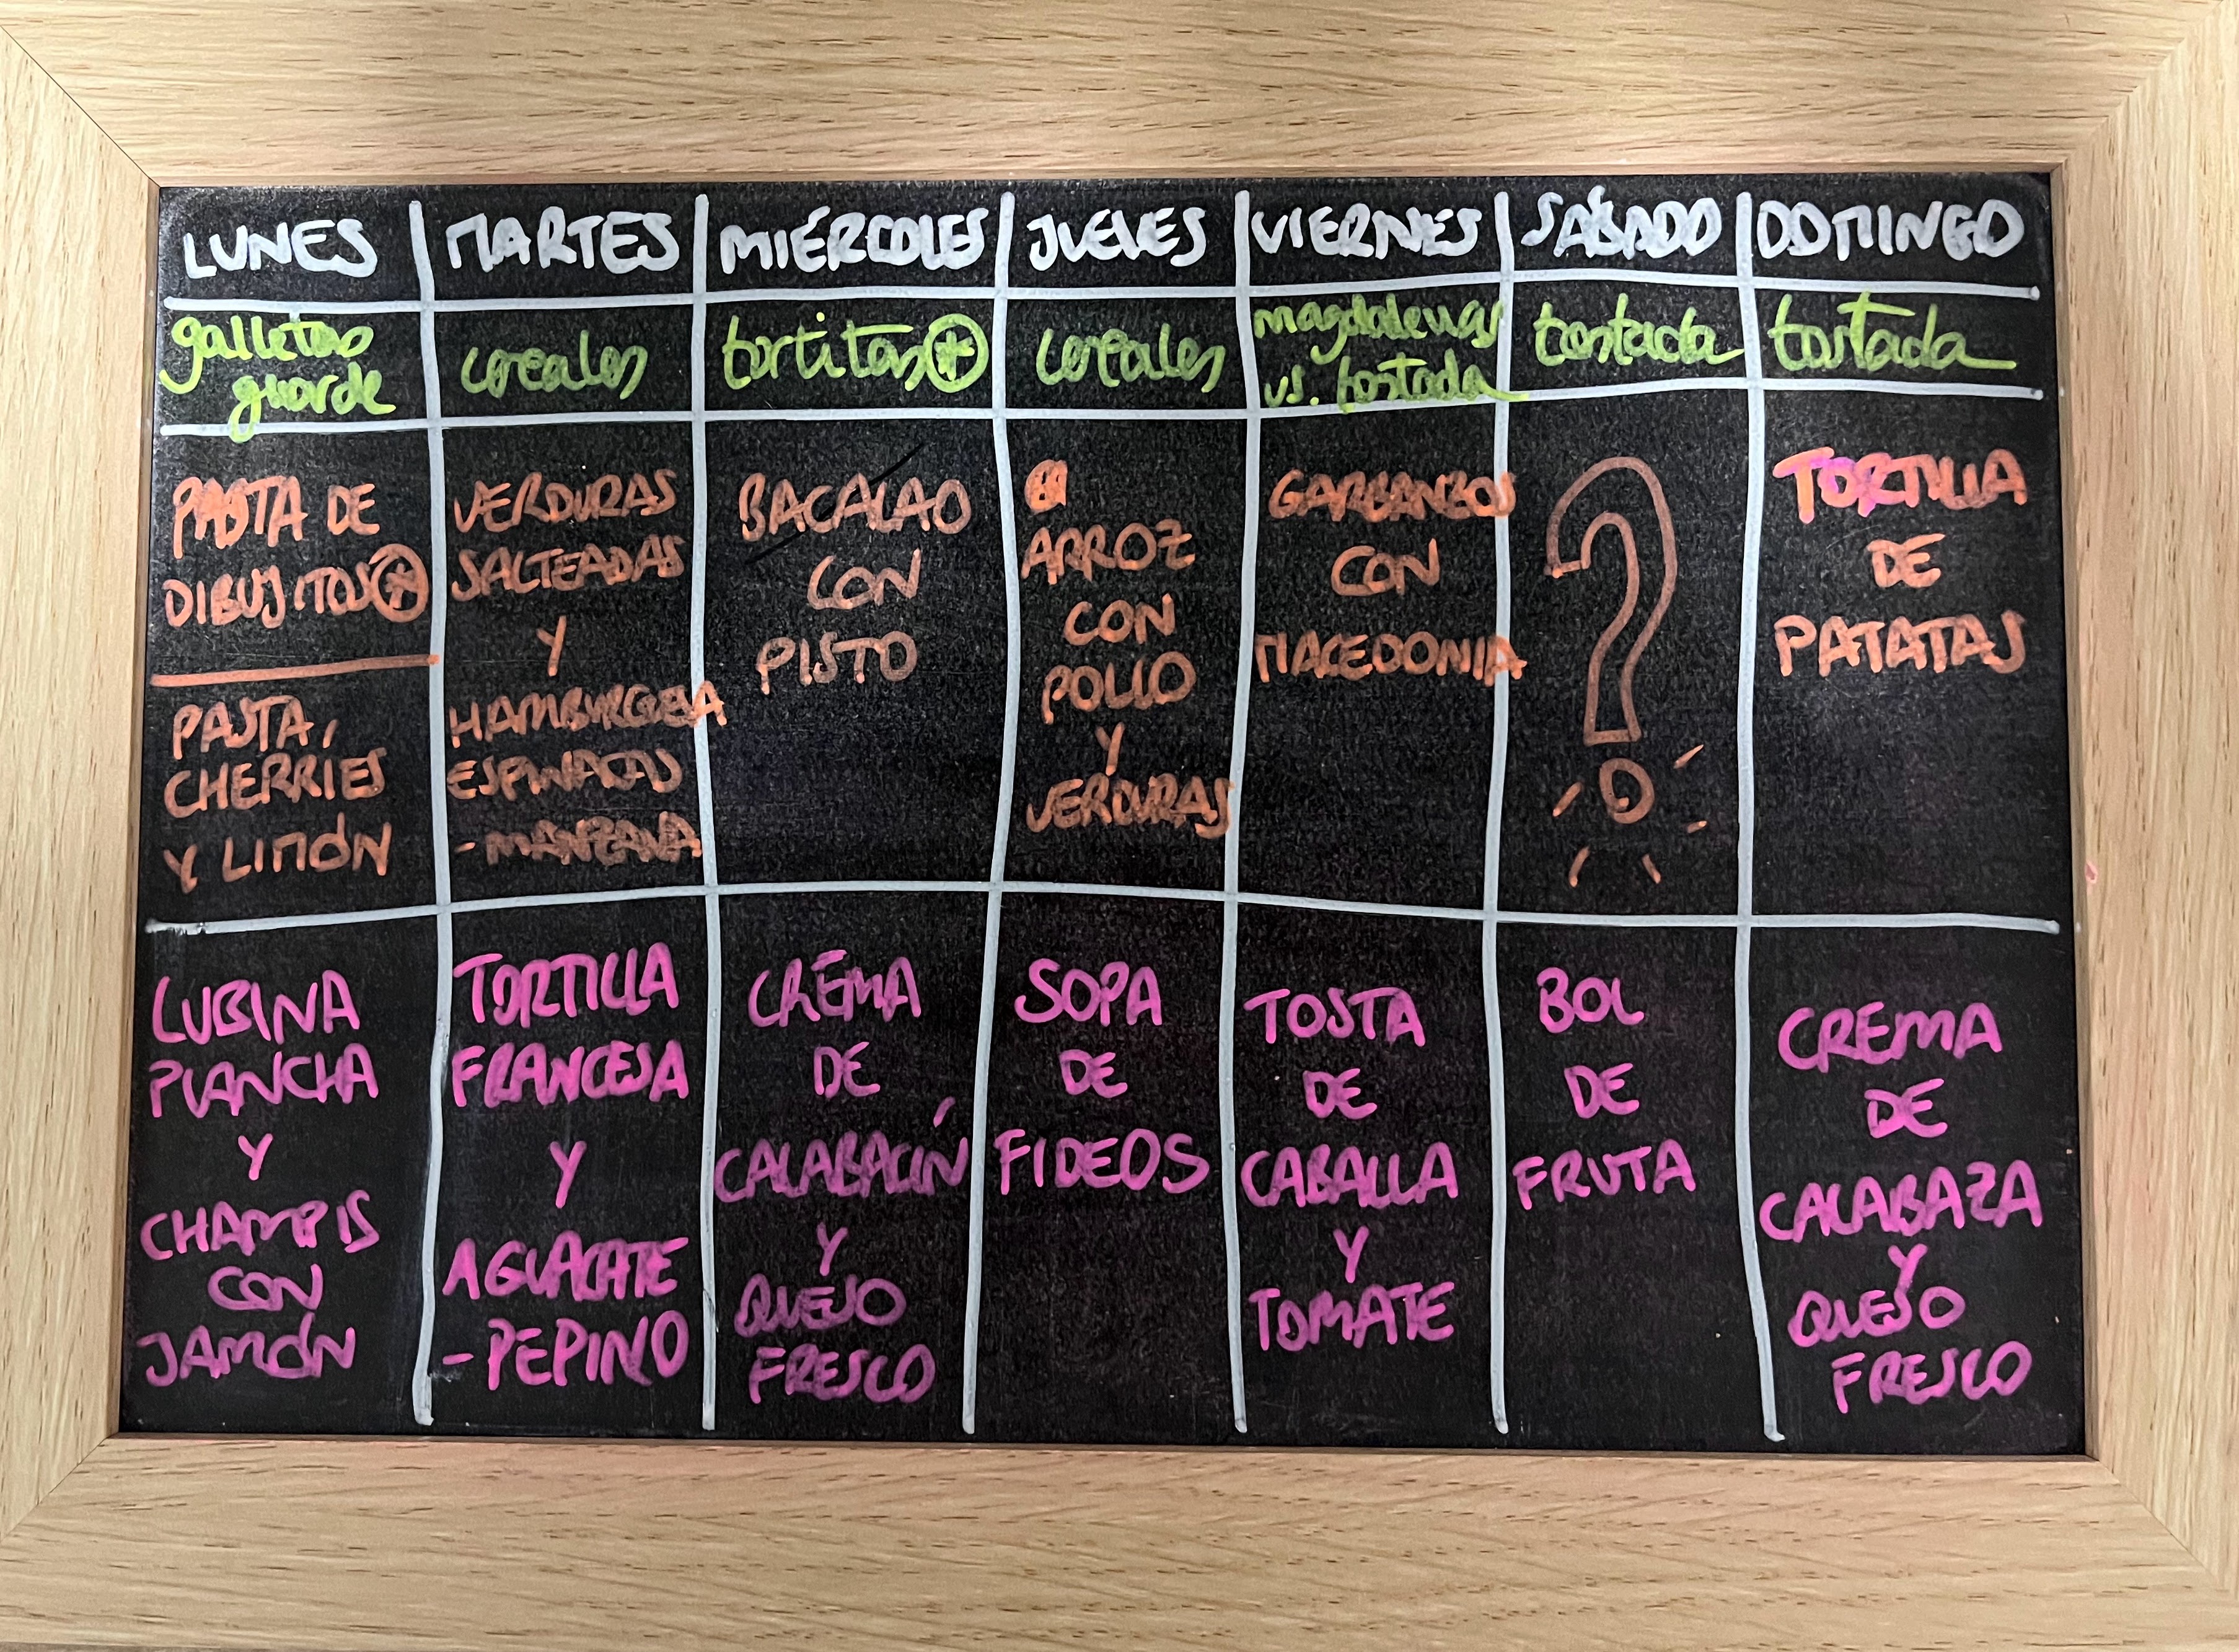 LUNES
MARTES
MIÉRCOLES
JUEVES
VIERNES
SÁBADO
DOMINGO
galletas
guarde
cereales
tortitas +
cereales
magdalenas
vs. tostada
tostada
tostada
PASTA DE
DIBUJITOS +
PASTA,
CHERRIES
Y LIMÓN
VERDURAS
SALTEADAS
Y
HAMBURGUESA
ESPINACAS
- MANZANA
BACALAO
CON
PISTO
ARROZ
CON
POLLO
Y
VERDURAS
GARBANZOS
CON
MACEDONIA
?
TORTILLA
DE
PATATAS
LUBINA
PLANCHA
Y
CHAMPIS
CON
JAMÓN
TORTILLA
FRANCESA
Y
AGUACATE
- PEPINO
CREMA
DE
CALABACÍN
Y
QUESO
FRESCO
SOPA
DE
FIDEOS
TOSTA
DE
CABALLA
Y
TOMATE
BOL
DE
FRUTA
CREMA
DE
CALABAZA
Y
QUESO
FRESCO